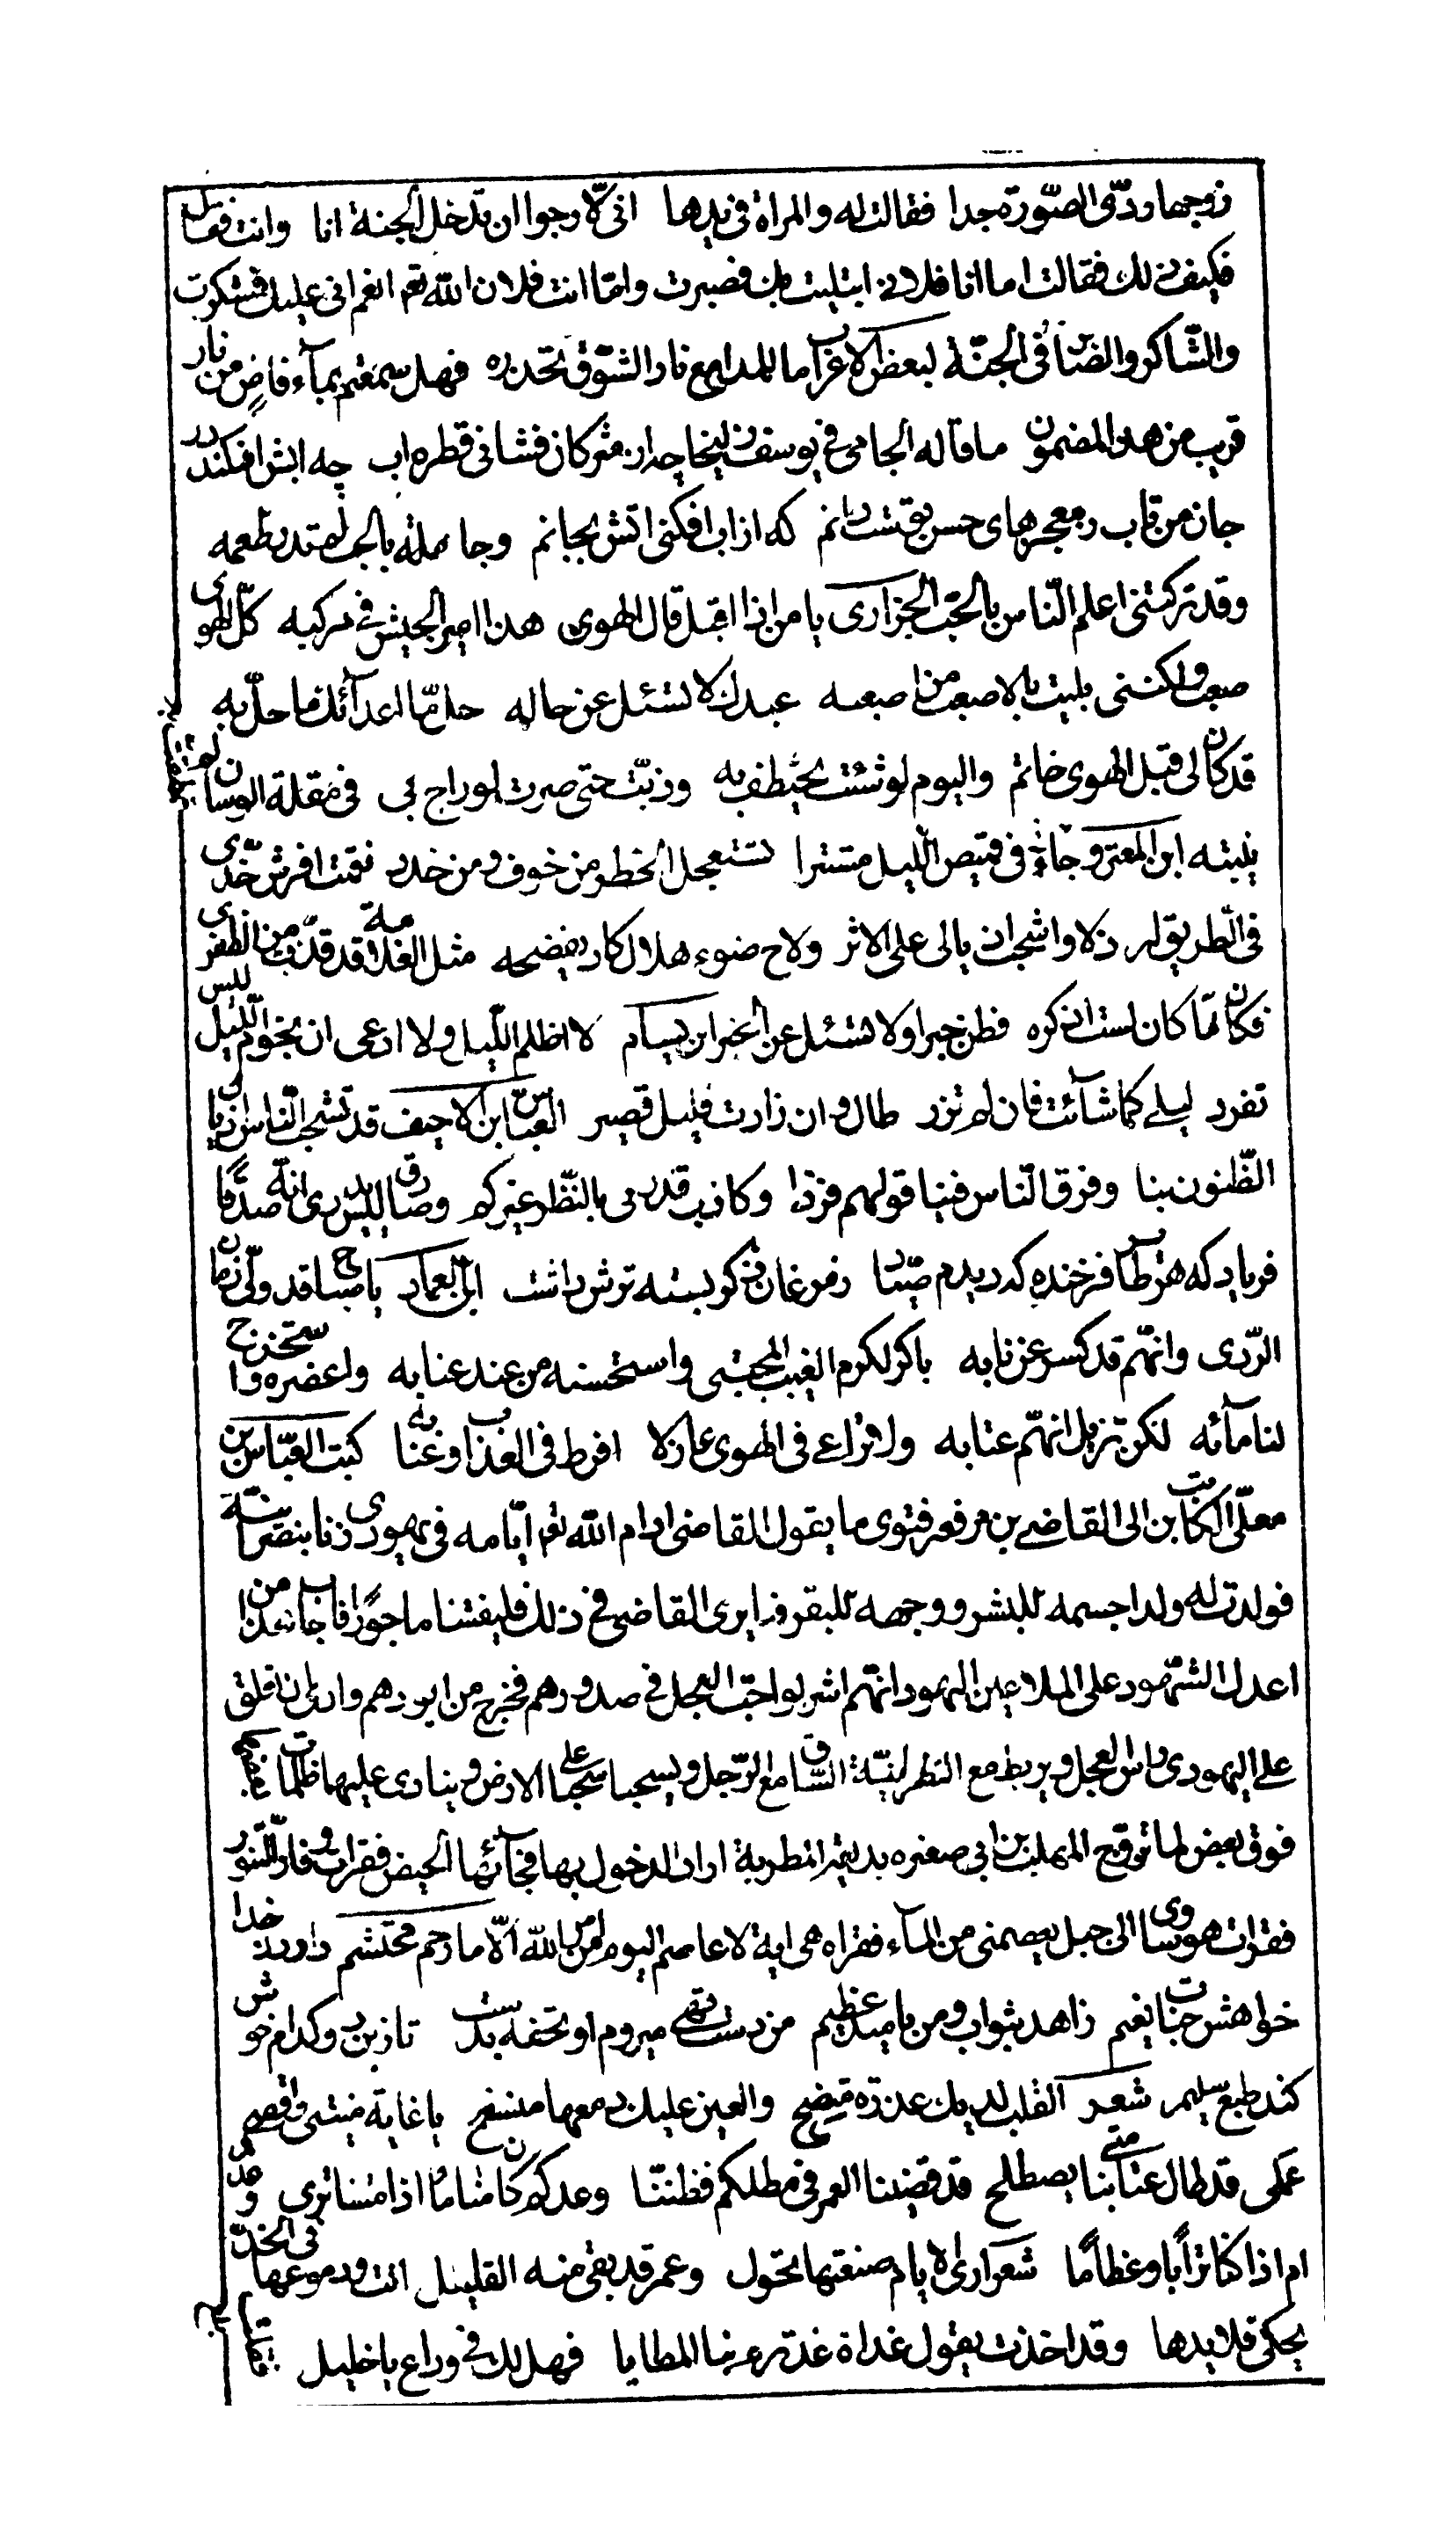 زوجها ردّى الصّورة جدا فقالت له والمراة فى يدها انى لارجوا ان تدخل الجنة انا وانت فقال
فكيف ذلك فقالت اما انا فلانى ابتليت بك فصبرت وامّا انت فلان الله تعم انعم انى عليك فشكرت
والشّاكر والصّابر فى الجنّة لبعض الاعراب ما للمدامع نار الشّوق تحدره فهل سمعتم بمآء فاض من نار
قريب من هذا المضمون ما قاله الجامى فى يوسف زليخا چه از مژكان فشانى قطره اب چه ابش افكند در
جان من تاب ز معجزهاى حسن تو ندانم كه از اب افكنى اتش بجانم وجاهلة بالحب لم تدر طعمه
وقد تركتنى اعلم النّاس بالحّب الجزارى يا من اذا اقبل قال الهوى هذا امير الجيش فى مركبه كلّ الهوى
صعب ولكننى بليت بالاصعب من اصعبه عبدك لا تسئل عن حاله حلّ بما اعدآئك ما حلّ به
قد كان لى قبل الهوى خاتم واليوم لو شئت تمنطقت به وذبت حتى صرت لو زج بى فى مقلة الوسنان لم
ينتبه ابن المعتز وجآء فى قميص اللّيل مستترا تستعجل الخطو من خوف ومن حذر فقمت افرش خدّى
فى الطّريق له ذلا واسحب اذيالى على الاثر ولاح ضوء هلال كاد يفضحه مثل القلامة قد قدّت من الظفر
فكان مّا كان لست اذكره فظن خيرا ولا تسئل عن الخبر ابن بسّام لا اظلم اللّيل ولا ادعى ان نجوم اللّيل ليس
تفرد ليلى كما شآئت فان لم تزر طال وان زارت فليل قصير العبّاس ابن الاحنف قد سحب النّاس اذيال
الظّنون بنا وفرق النّاس فينا قولهم فرقا وكاذب قد رمى بالظّن غيركم وصادق ليس يدرى انّه صدقا
فرياد كه هر طاير فرخنده كه ديدم صيّاد ز مرغان دكر بسته ترش داشت ابن العماد يا صاح قد ولّى زمان
الرّدى وانهّم قد كسر عن نابه باكر لكرم العنب المجتبى واستحسنه من عند عنابه واعصره واستخرج
لنا مآئه لكن تزيل الهّم عنا به ولا تراع فى الهوى عاذلا افرط فى العذل وعنا به كتب العبّاس بن
معلّى الكاتب الى القاضى بن فتوى ما يقول القاضى ادام الله تعم ايّامه فى يهودى زنا بنصرانيّة
فولدت له ولدا جسمه للبشر ووجهه للبقر فما يرى القاضى فى ذلك فليفتنا ماجورًا فاجاب هذا من
اعدل الشّهود على الملاعين اليهود انهّم اشربوا حبّ العجل فى صدورهم فخرج من ايورهم وارى ان تعلق
على اليهودى راس العجل ويربط مع النصرانيّة السّاق مع الرّجل ويسحبا سحبًا على الارض وينادى عليهما ظلمات
فوق بعض لما تزوّج المهلب بن ابى صفره بديعة المطربة اراد الدخول بها فجآئها الحيض فقرات وفار التّنور
فقرا هو ساوى الى جبل يعصمنى من المآء فقراه هى اية لا عاصم اليوم من امر الله الّا ما رحم محتشم دارد ز خدا
خواهش جنّات نعيم زاهد بثواب ومن باميد عظيم من دست تهى ميروم او تحفه بدست تا زين دو كدام خوش
كند طبع سليم شعر القلب لديك عذره متضح والعين عليك دمعها منسفح يا غاية منيتى واقصى
عملى قد طال عتابنا متى يصطلح قد قضينا العمر فى مطلكم فظننّا وعدكم كان منامًا ااذا متنا ترى وعدكم
ام اذا كنّا ترابًا وعظامًا شعر ارى الايام صنعتها تحول وعمر قد بقى منه القليل اتت ودموعها فى الخدّ
يحكى قلايدها وقد اخذت يقول غداة غد ترم بنا المطايا فهل لك فى وداع يا خليل